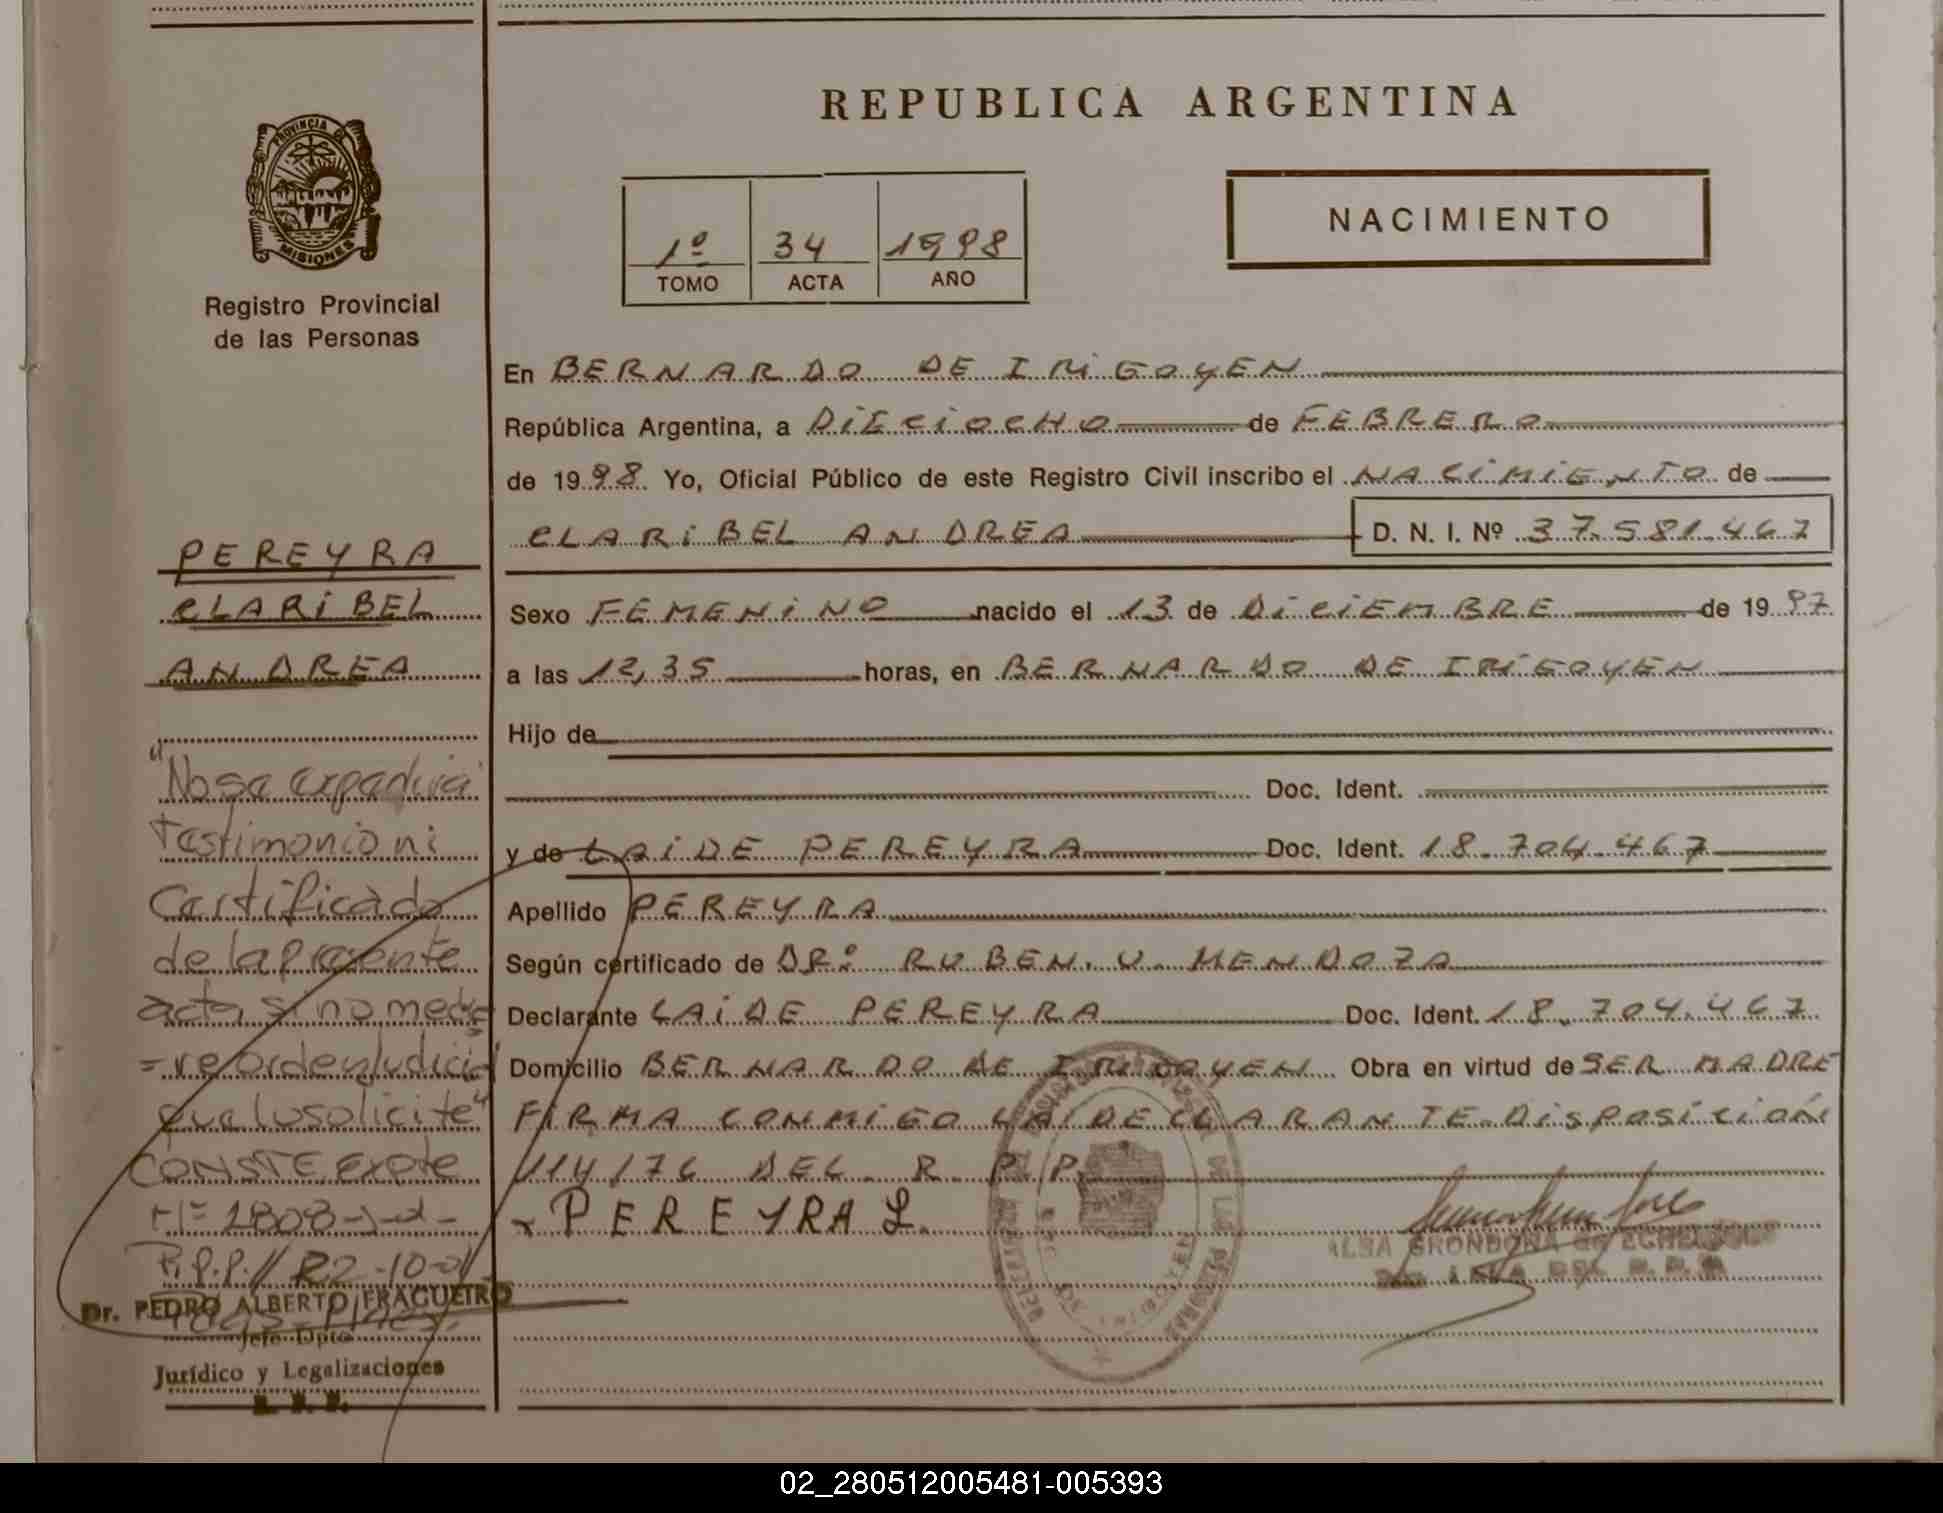 REPUBLICA ARGENTINA
PROVINCIA DE
MISIONES
Registro Provincial
de las Personas
1º 34 1998
TOMO ACTA AÑO
NACIMIENTO
En BERNARDO DE IRIGOYEN
República Argentina, a DIECIOCHO de FEBRERO
de 1998 Yo, Oficial Público de este Registro Civil inscribo el NACIMIENTO de
CLARIBEL ANDREA D. N. I. Nº 37.581.467
Sexo FEMENINO nacido el 13 de DICIEMBRE de 1997
a las 12,35 horas, en BERNARDO DE IRIGOYEN
Hijo de
Doc. Ident.
y de LAIDE PEREYRA Doc. Ident. 18.704.467
Apellido PEREYRA
Según certificado de DR: RUBEN. U. MENDOZA
Declarante LAIDE PEREYRA Doc. Ident. 18.704.467
Domicilio BERNARDO DE IRIGOYEN Obra en virtud de SER MADRE
FIRMA CONMIGO LA DECLARANTE-DISPOSICION
114/76 DEL. R. P. P.
PEREYRA L.
PEREYRA
CLARIBEL
ANDREA
"No se expedira
Testimonio ni
Certificado
de la presente
acta, si no media
=re orden Judicial
que lo solicite"
CONSTE, Expte
Nº 1808-J-01-
R.P.P.// 22-10-01
Dr. PEDRO ALBERTO FRAGUEIRO
Jefe Dpto
Jurídico y Legalizaciones
R. P. P.
02_280512005481-005393